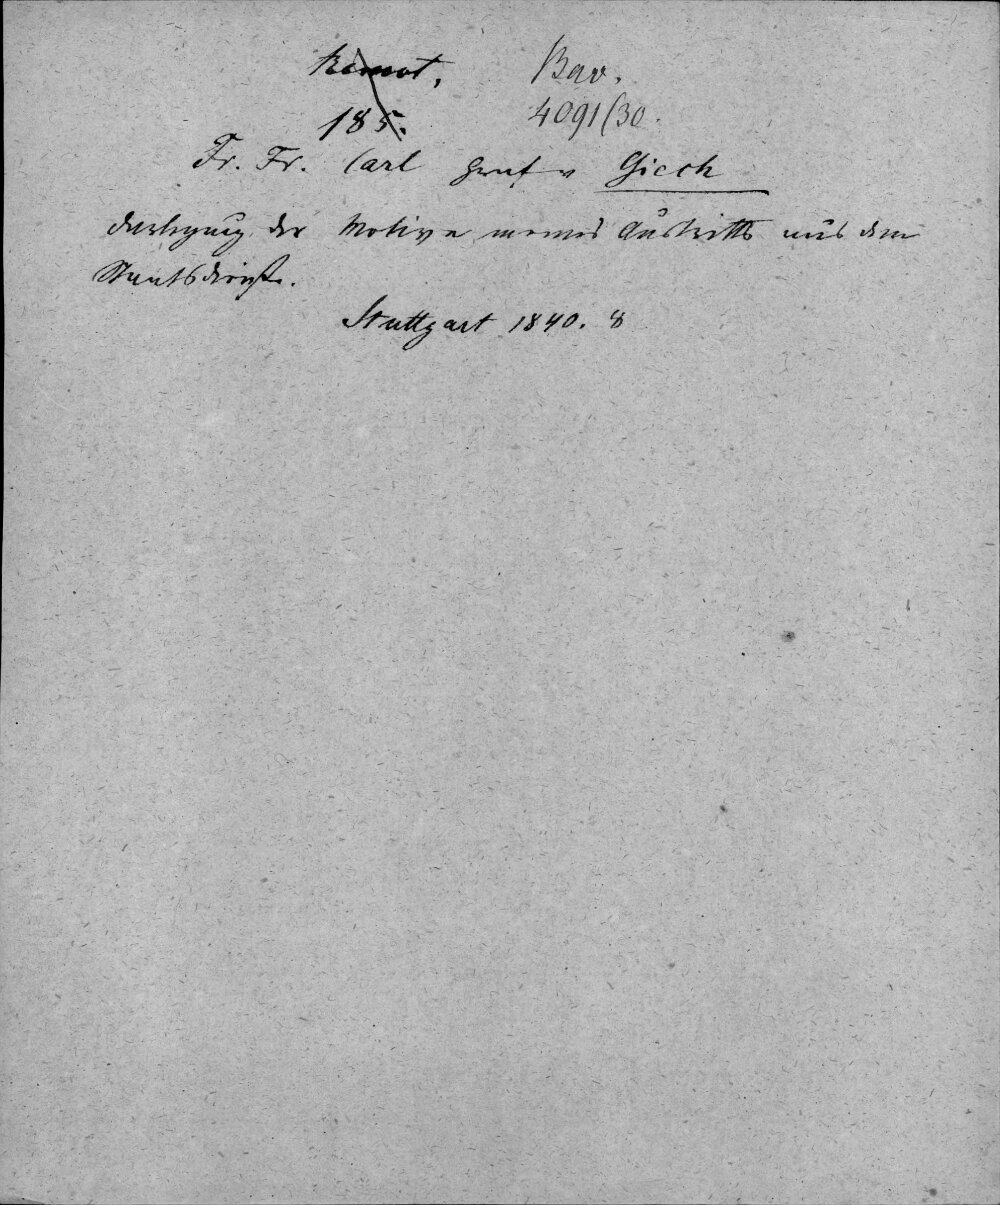 Remot, Bav.
185. 4091/30.
Fr. Fr. Carl Graf v Giech
Darlegung der Motive meines Austritts aus dem
Staatsdienste.
Stuttgart 1840. 8